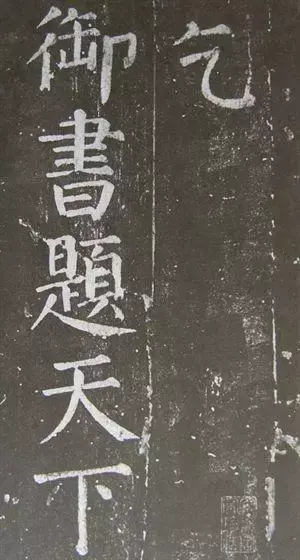 乞
御書題天下